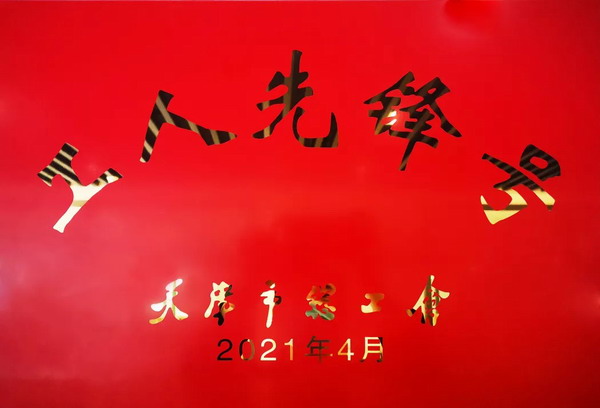 工人先锋号
天津市总工会
2021年4月